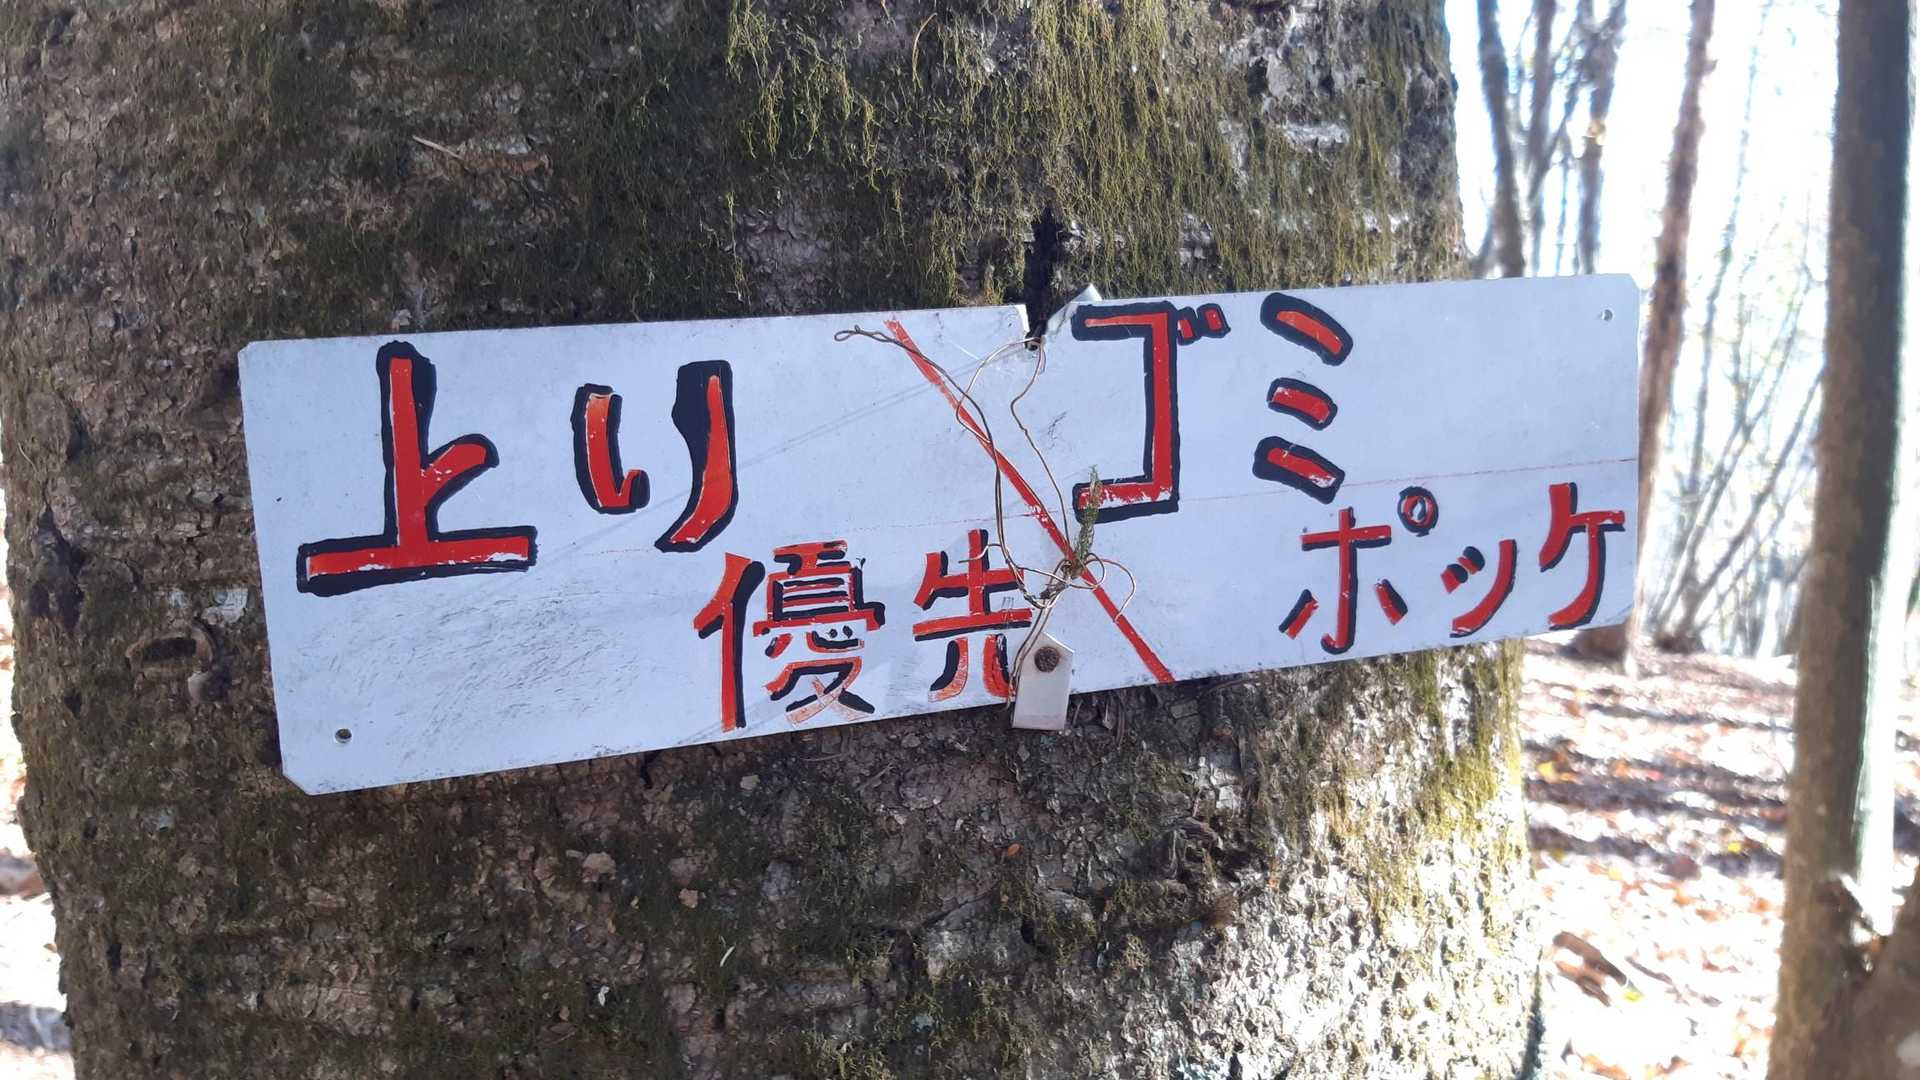 上り
優先
ゴミ
ポッケ